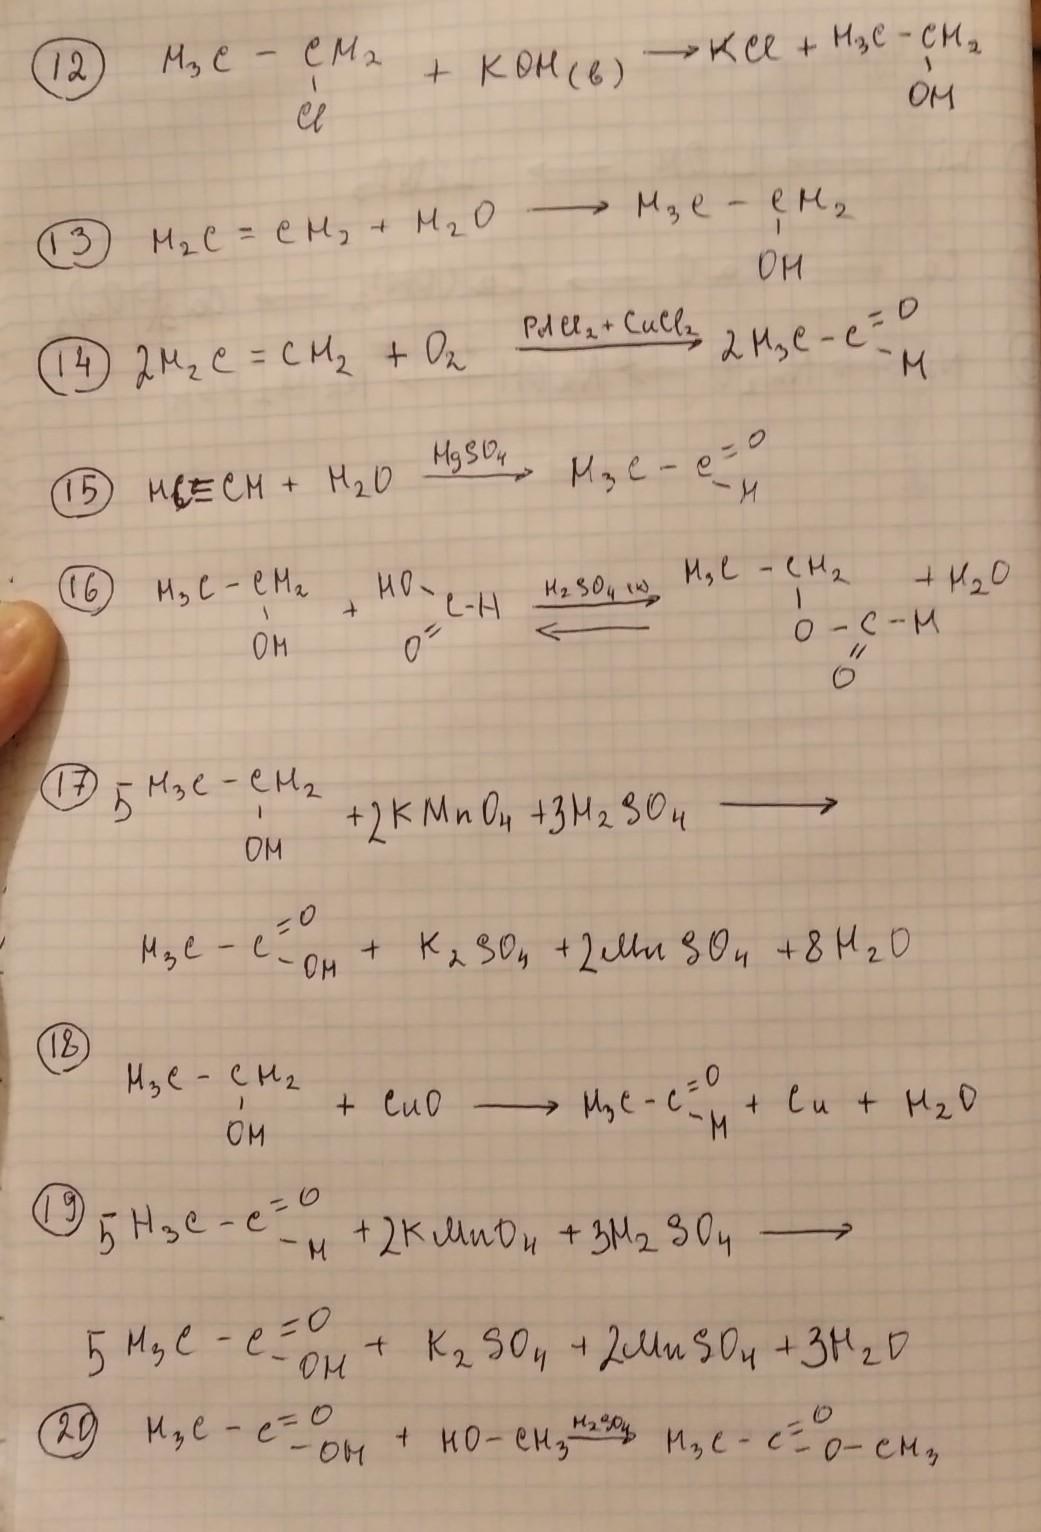 12 H₃C - CH₂ + KOH(в) → KCl + H₃C - CH₂
Cl OH
13 H₂C = CH₂ + H₂O → H₃C - CH₂
OH
14 2H₂C = CH₂ + O₂ PdCl₂ + CuCl₂ → 2H₃C - C =O -H
15 HC≡CH + H₂O HgSO₄ → H₃C - C =O -H
16 H₃C - CH₂ + HO-C-H H₂SO₄ (к) ⇄ H₃C - CH₂ + H₂O
OH O= O - C - H
O
17 5 H₃C - CH₂ + 2KMnO₄ + 3H₂SO₄ →
OH
H₃C - C =O -OH + K₂SO₄ + 2MnSO₄ + 8H₂O
18 H₃C - CH₂ + CuO → H₃C - C =O -H + Cu + H₂O
OH
19 5 H₃C - C =O -H + 2KMnO₄ + 3H₂SO₄ →
5 H₃C - C =O -OH + K₂SO₄ + 2MnSO₄ + 3H₂O
20 H₃C - C =O -OH + HO - CH₃ H₂SO₄ → H₃C - C =O -O - CH₃